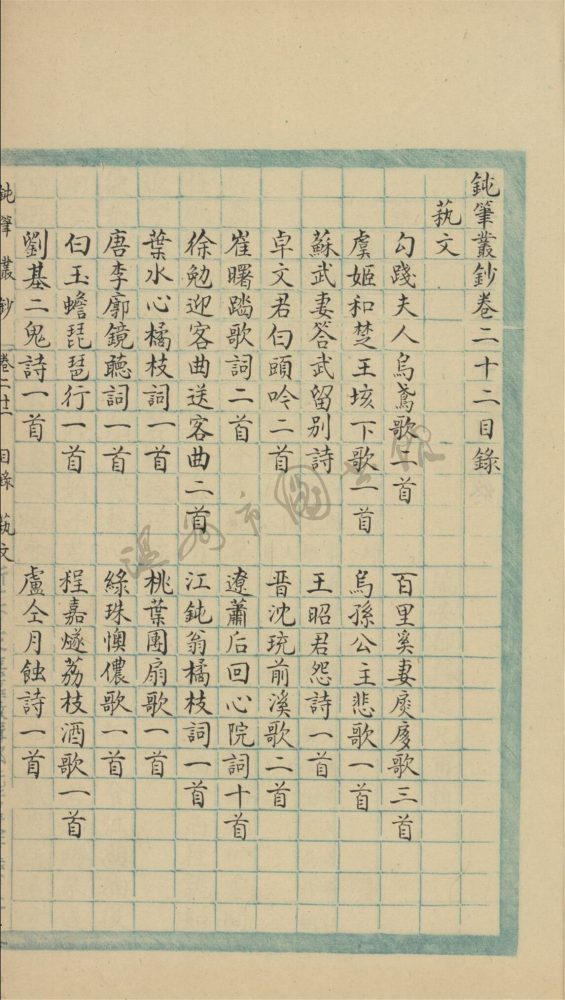 鈍筆叢鈔卷二十二目錄
蓺文
勾踐夫人烏鳶歌二首 百里奚妻扊扅歌三首
虞姬和楚王垓下歌一首 烏孫公主悲歌一首
蘇武妻答武留别詩 王昭君怨詩一首
卓文君白頭吟二首 晋沈珫前溪歌二首
崔曙踏歌詞二首 遼蕭后回心院詞十首
徐勉迎客曲送客曲二首 江鈍翁橘枝詞一首
葉水心橘枝詞一首 桃葉團扇歌一首
唐李廓鏡聽詞一首 綠珠懊儂歌一首
白玉蟾琵琶行一首 程嘉燧荔枝酒歌一首
劉基二鬼詩一首 盧仝月蝕詩一首
鈍筆叢鈔 卷二十二 目錄 蓺文
溫州市圖書館